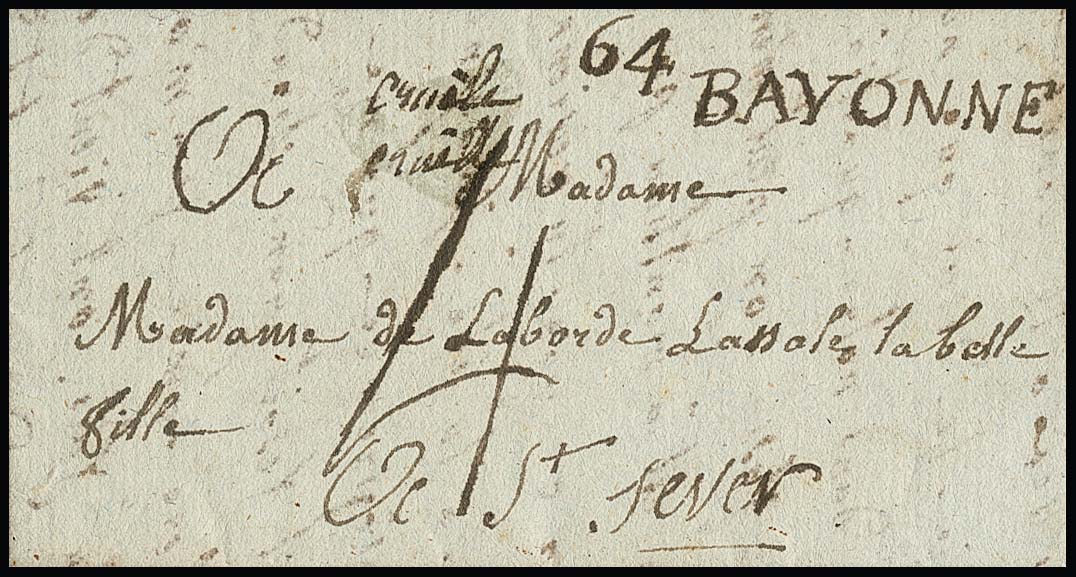 64
BAYONNE
cruèle
A Madame
Madame de Laborde Lassale, la belle
fille
A St sever